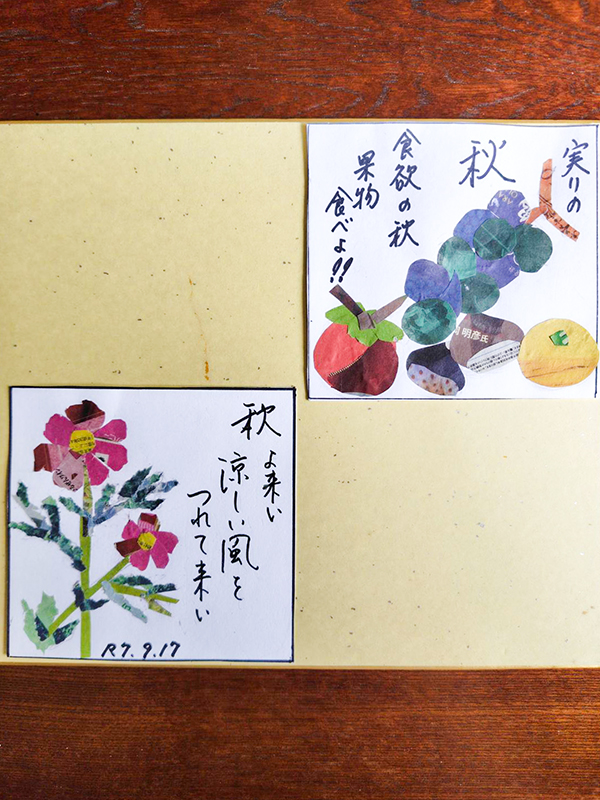 実りの
秋
食欲の秋
果物
食べよ!!
明彦氏
秋よ来い
涼しい風を
つれて来い
R7.9.17